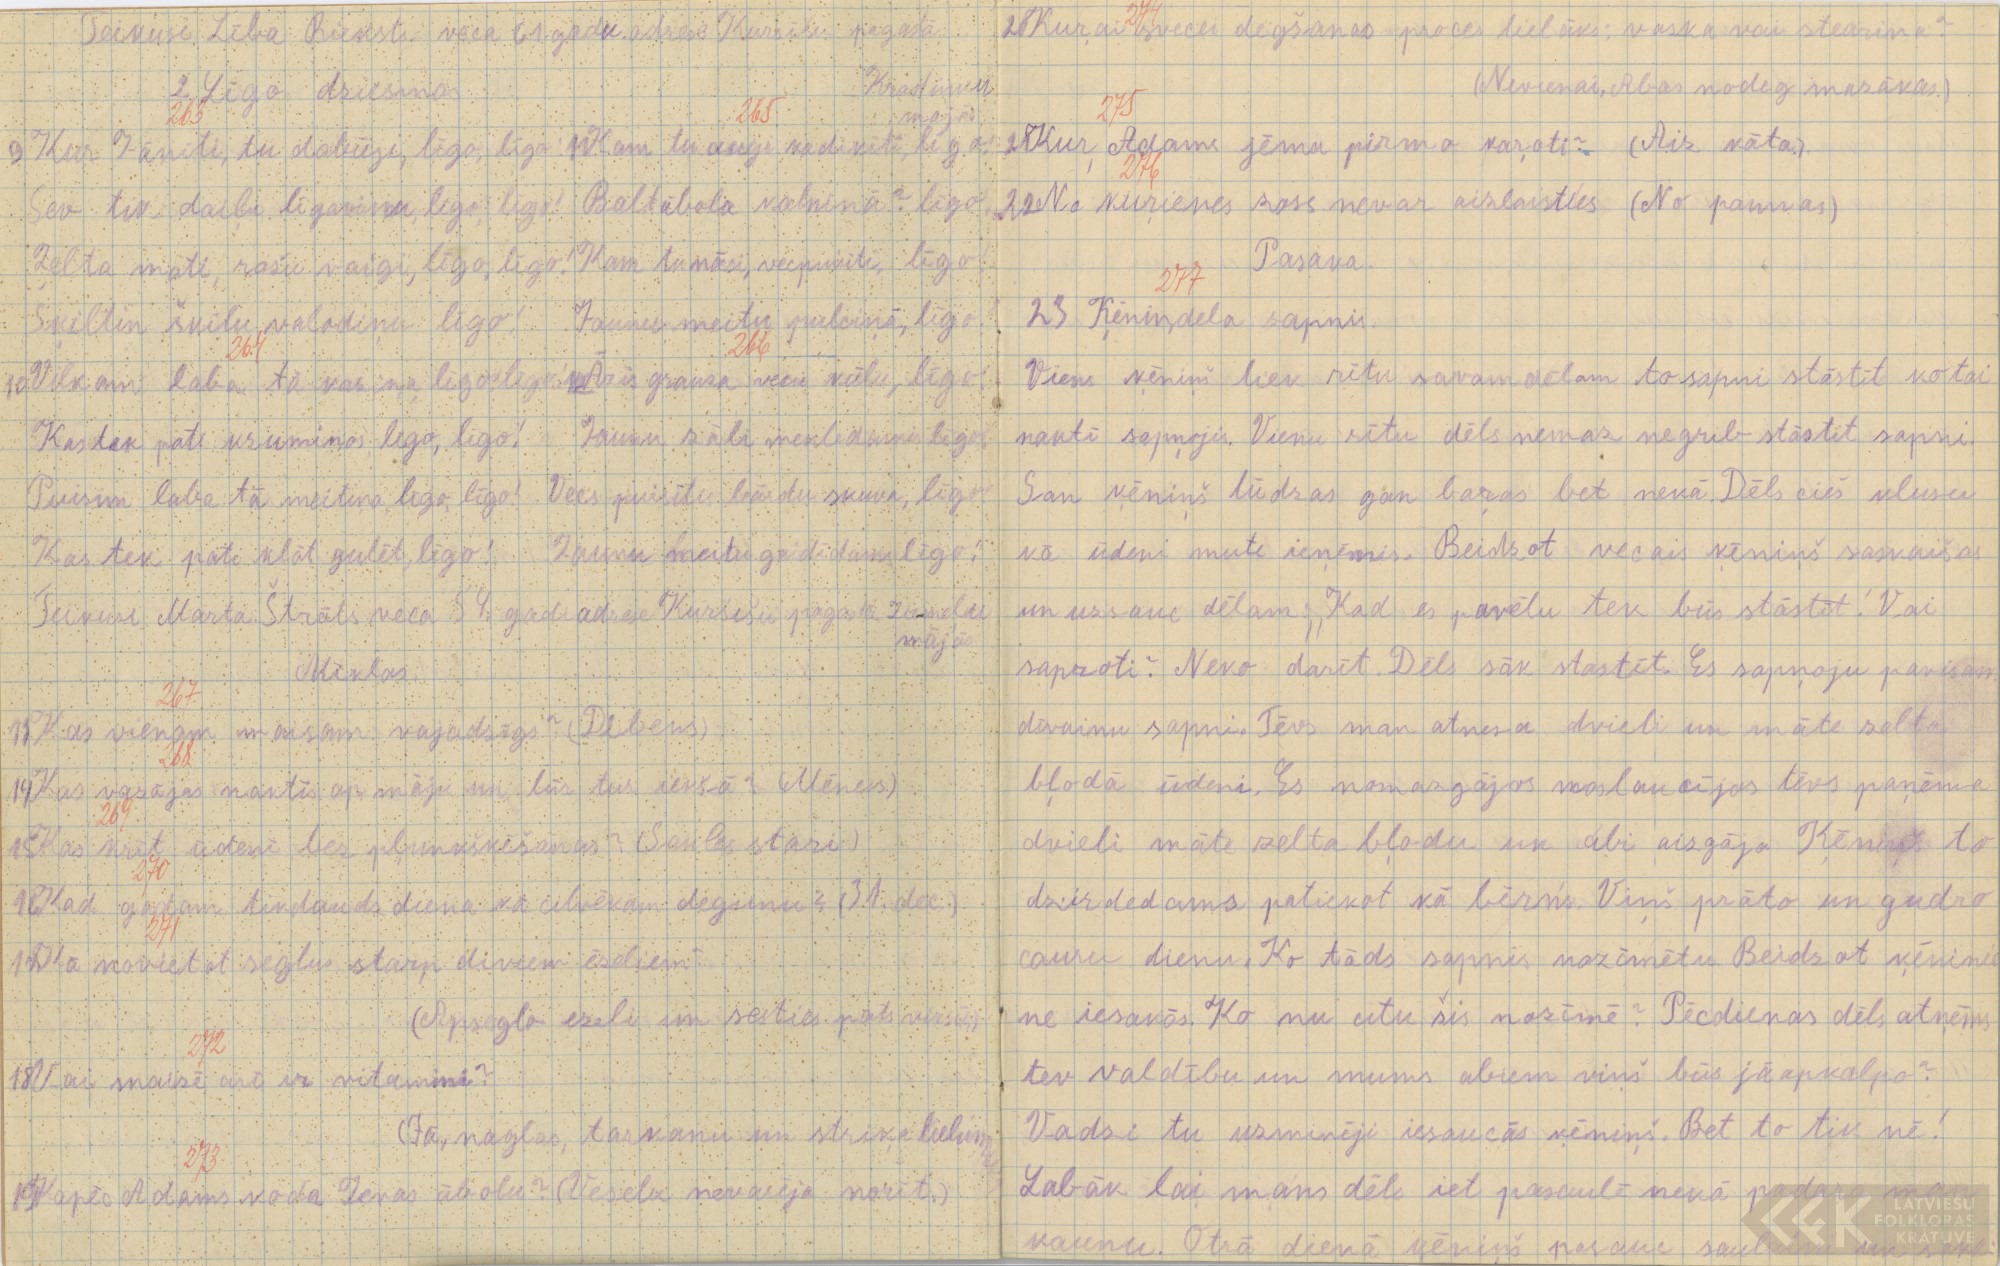 Teikusi Lība Riekst. veca 61 gadu. adrese Kursīšu pagastā
Krastiņu
mājās
2 Līgo dziesmas
263
9 Kur Jānīti, tu dabūji, līgo, līgo!
Sev tik daiļu līgaviņu, līgo, līgo!
Zelta mati, rožu vaigi, līgo, līgo!
Šķiltin šķilu valodiņu līgo!
264
10 Vilkam laba tā kaziņa, līgo, līgo!
Kas tek pati krūmiņos līgo, līgo!
Puisim laba tā meitiņa līgo, līgo!
Kas tek pati klāt gulēt, līgo!
265
11 Kam tu augi kadiķīti, līgo!
Baltābola kalniņā? līgo.
Kam tu nāci, vecpuisīti, līgo!
Jaunu meitu pulciņā, līgo!
266
12 Āzis grauza vecu kūlu, līgo!
Jaunu zāli meklēdams līgo.
Vecs puisītis bārdu skuva, līgo
Jaunu meitu gaidīdams līgo!
Teikusi Marta Štrāls veca 54 gadi adrese Kursīšu pagastā
mājās
Mīklas.
267
13 Kas vienam maisam vajadzīgs? (Dibens)
268
14 Kas vazājas naktīs ap māju un lūr tur iekšā? (Mēness)
269
15 Kas krīt ūdenī bez pļunkšķēšanas? (Saules stari)
270
16 Kad gadam tikdaudz diena kā cilvēkam degunu? (31. dec.)
271
17 Kā novietot seglus starp diviem ēzeļiem?
(Apseglo ezeli un sēsties pats virsū)
272
18 Vai maizē arī ir vitamīni?
(Jā, naglas, tarkanu un striķa lielumā
273
19 Kapēc Adams koda Ievas ābolu? (Veselu nevarēja norīt.)
274
20 Kuŗai svecei degšanas proces lielāks: vaska vai stearina?
(Nevienai, Abas nodeg mazākas.)
275
21 Kur Adams jēma pirmo kaŗoti? (Aiz kāta.)
276
22 No kurienes zoss nevar aizlaisties (No pannas)
Pasaka.
277
23 Ķēniņdela sapnis.
Viens ķēniņš liek rītu savam dēlam to sapni stāstīt ko tai
naktī sapņojis. Vienu rītu dēls nemaz negrib stāstīt sapni.
San ķēniņš lūdzas gan baŗas bet nekā. Dēls cieš klusu
kā ūdeni mutē ieņēmis. Beidzot vecais ķēniņš saskaišas
un uzsauc dēlam: „Kad es pavēlu tek būs stāstīt! Vai
saproti? Neko darīt. Dēls sāk stastīt. Es sapņoju pavisam
dīvainu sapni. Tēvs man atnesa dvieli un māte zelta
bļodā ūdeni. Es nomazgājos noslaucījos tēvs paņēma
dvieli māte zelta bļodu un abi aizgāja Ķēniņš to
dzirdedams patiekot kā bērns. Viņš prāto un gudro
cauru dienu. Ko tāds sapnis nozīmētu. Beidzot ķēniņie
ne iesakās. Ko nu citu šis nozīmē? Pēcdienas dēls atņēms
tev valdību un mums abiem viņš būs jāapkalpo?
Vadzi tu uzminēji iesaucās ķēniņš. Bet to tik nē!
Labāk lai mans dēls iet pasaulē nekā padara man
kaunu. Otrā dienā ķēniņš pasauc
LATVIEŠU
FOLKLORAS
KRĀTUVE